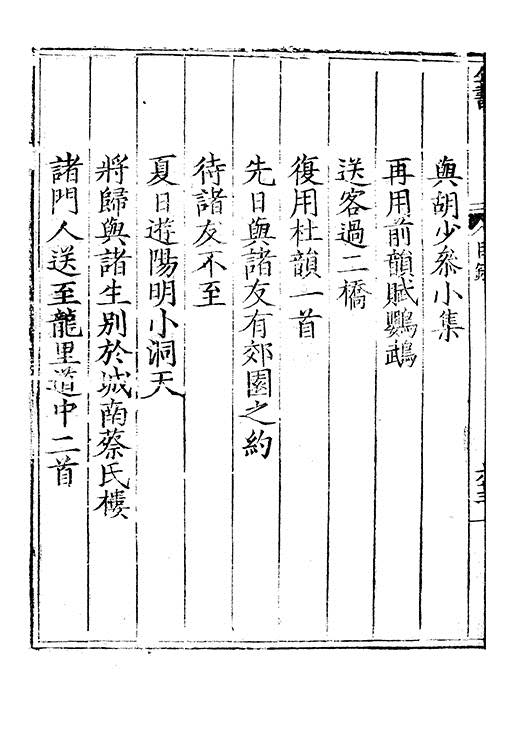 與胡少叅小集
再用前韻賦鸚鵡
送客過二橋
復用杜韻一首
先日與諸友有郊園之約
待諸友不至
夏日遊陽明小洞天
將歸與諸生別於城南蔡氏樓
諸門人送至龍里道中二首